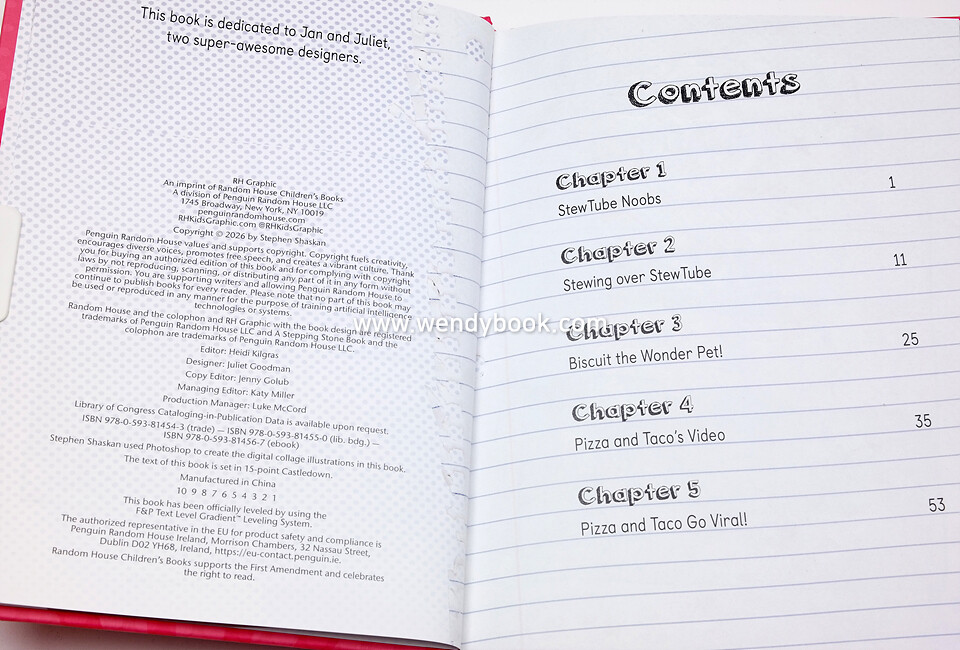 This book is dedicated to Jan and Juliet,
two super-awesome designers.
RH Graphic
An imprint of Random House Children's Books
A division of Penguin Random House LLC
1745 Broadway, New York, NY 10019
penguinrandomhouse.com
RHKidsGraphic.com @RHKidsGraphic
Copyright © 2026 by Stephen Shaskan
Penguin Random House values and supports copyright. Copyright fuels creativity,
encourages diverse voices, promotes free speech, and creates a vibrant culture. Thank
you for buying an authorized edition of this book and for complying with copyright
laws by not reproducing, scanning, or distributing any part of it in any form without
permission. You are supporting writers and allowing Penguin Random House to
continue to publish books for every reader. Please note that no part of this book may
be used or reproduced in any manner for the purpose of training artificial intelligence
technologies or systems.
Random House and the colophon and RH Graphic with the book design are registered
trademarks of Penguin Random House LLC and A Stepping Stone Book and the
colophon are trademarks of Penguin Random House LLC.
Editor: Heidi Kilgras
Designer: Juliet Goodman
Copy Editor: Jenny Golub
Managing Editor: Katy Miller
Production Manager: Luke McCord
Library of Congress Cataloging-in-Publication Data is available upon request.
ISBN 978-0-593-81454-3 (trade) — ISBN 978-0-593-81455-0 (lib. bdg.) —
ISBN 978-0-593-81456-7 (ebook)
Stephen Shaskan used Photoshop to create the digital collage illustrations in this book.
The text of this book is set in 15-point Castledown.
Manufactured in China
10 9 8 7 6 5 4 3 2 1
This book has been officially leveled by using the
F&P Text Level Gradient™ Leveling System.
The authorized representative in the EU for product safety and compliance is
Penguin Random House Ireland, Morrison Chambers, 32 Nassau Street,
Dublin D02 YH68, Ireland, https://eu-contact.penguin.ie.
Random House Children's Books supports the First Amendment and celebrates
the right to read.
www.wendybook.com
Contents
Chapter 1
StewTube Noobs 1
Chapter 2
Stewing over StewTube 11
Chapter 3
Biscuit the Wonder Pet! 25
Chapter 4
Pizza and Taco's Video 35
Chapter 5
Pizza and Taco Go Viral! 53